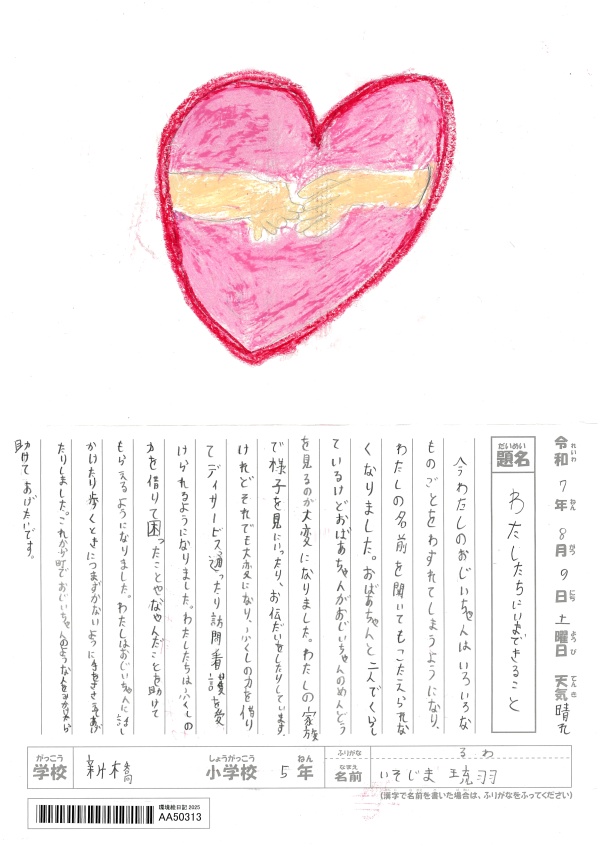 令和7年8月9日土曜日 天気 晴れ
れいわ ねん がつ にち ようび てんき
だいめい
題名 わたしたちにいまできること
今わたしのおじいちゃんはいろいろな
ものごとをわすれてしまうようになり、
わたしの名前を聞いてもこたえられな
くなりました。おばあちゃんと二人でくらし
ているけどおばあちゃんがおじいちゃんのめんどう
を見るのが大変になりました。わたしの家族
で様子を見にいったり、お伝だいをしたりしています。
けれどそれでも大変になり、ふくしの力を借り
てディサービス通ったり訪問看護を受
けられるようになりました。わたしたちはふくしの
力を借りて困ったことやなやんだことを助けて
もらえるようになりました。わたしはおじいちゃんに話し
かけたり歩くときにつまずかないように手をささえてあげ
たりしました。これから町でおじいちゃんのような人をみかけたら
助けてあげたいです。
がっこう しょうがっこう ねん
学校 新橋 小学校 5年
ふりがな るわ
なまえ
名前 いそじま 琉羽
(漢字で名前を書いた場合は、ふりがなをふってください)
環境絵日記 2025
AA50313